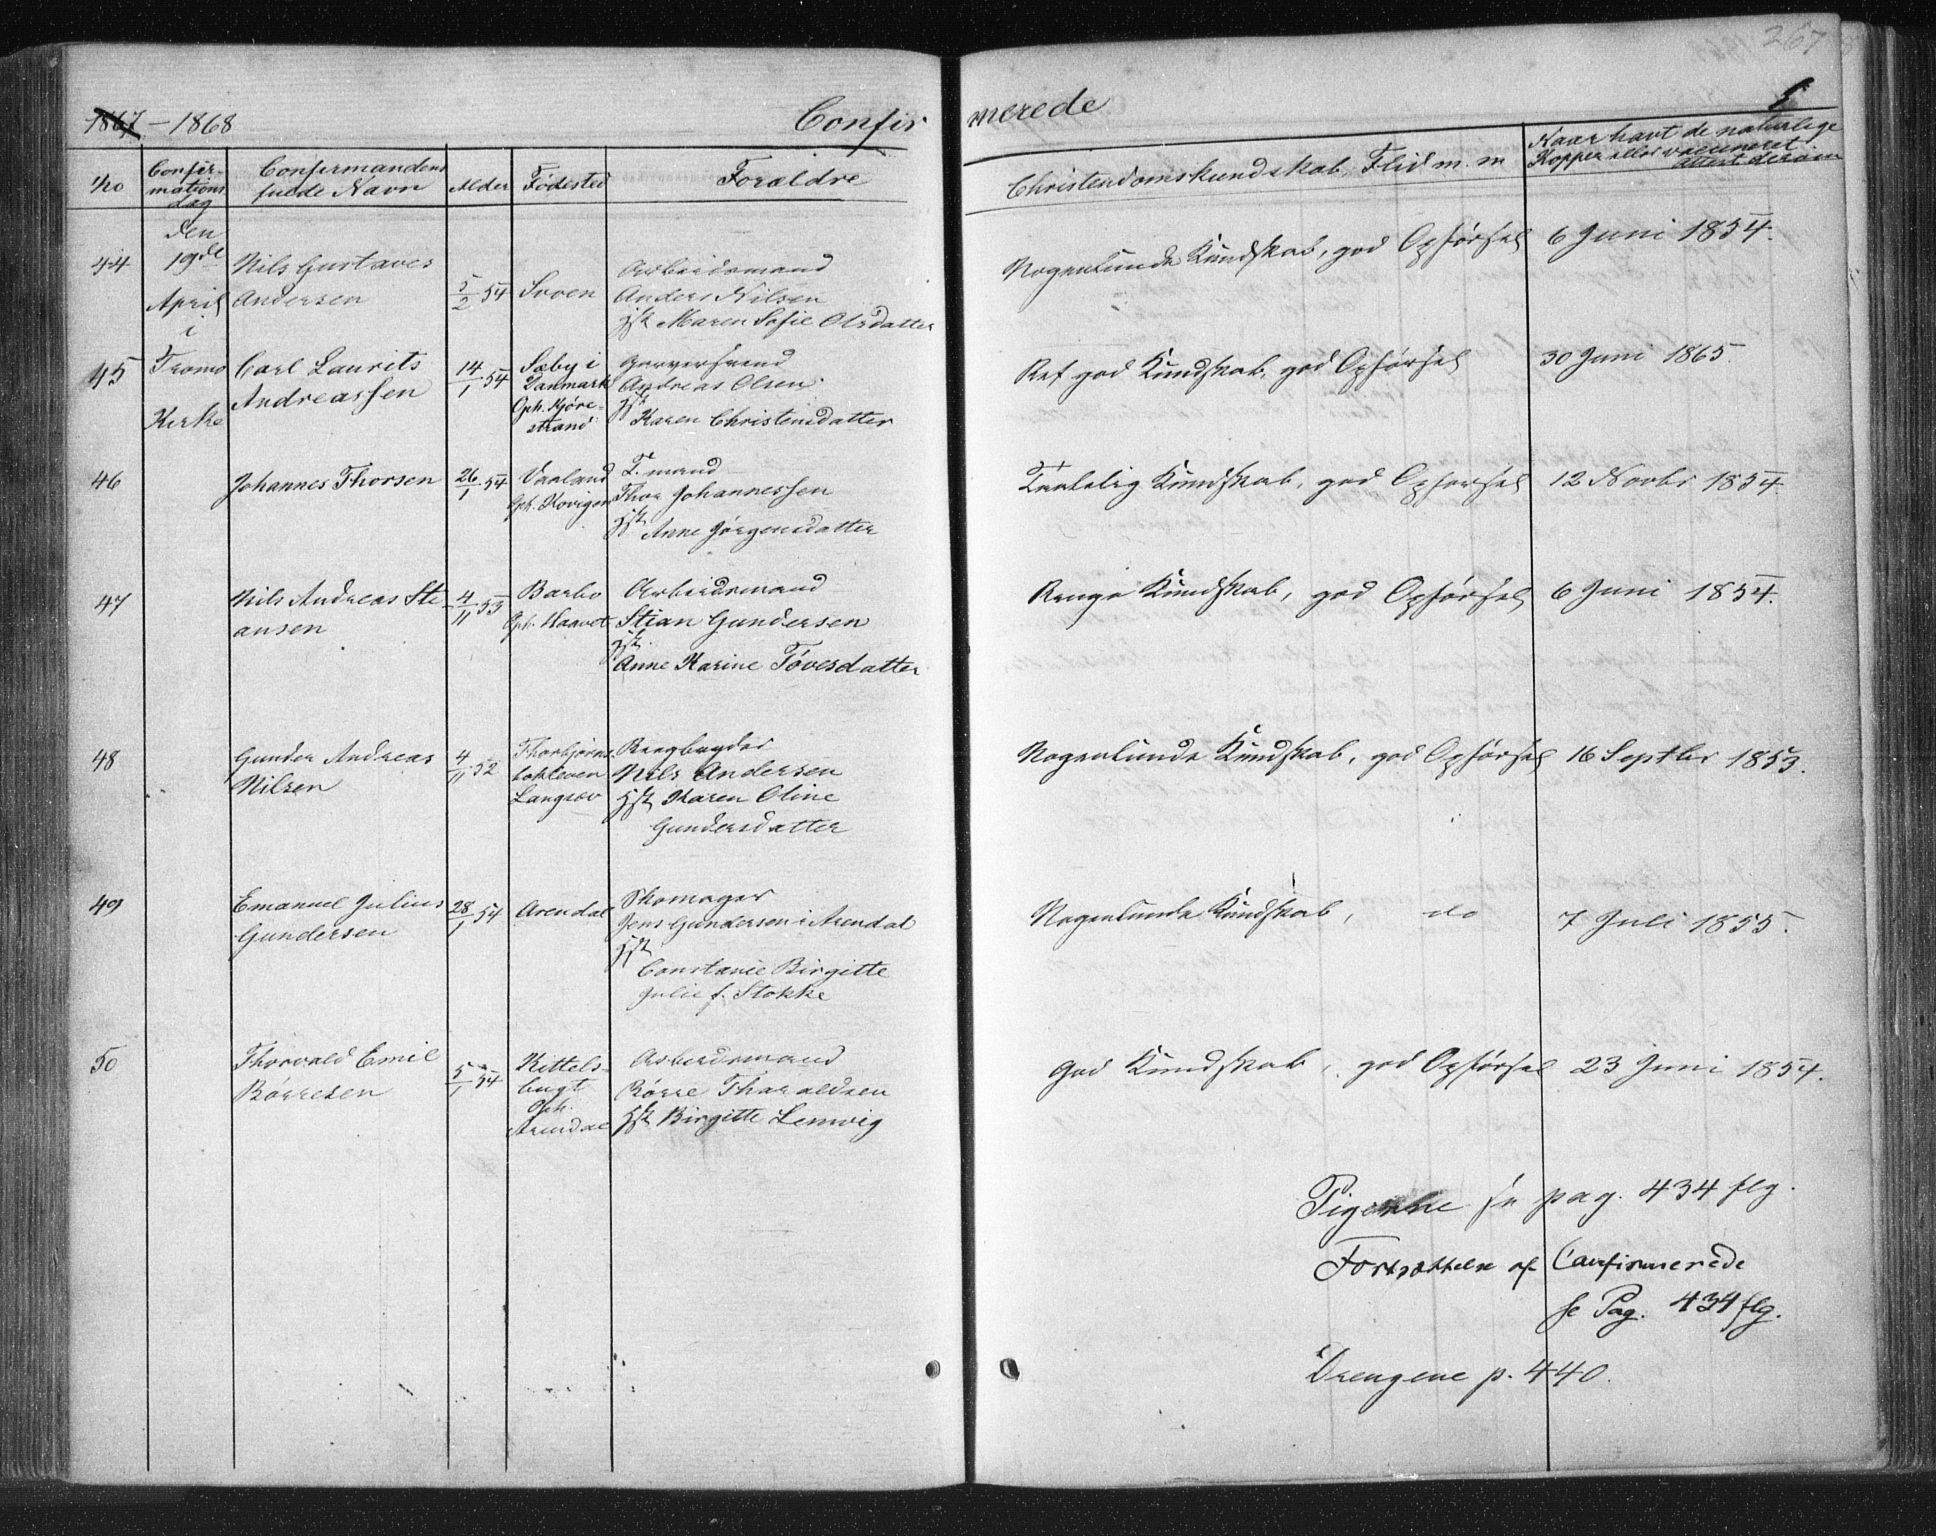 267
1867 - 1868 Confirmerede
No Confirmations Dag Confirmandens fulde Navn Alder Fødested Forældre Christendomskundskab, Flid m. m Naar havt de naturlige Kopper eller vaccineret. attest derom
den 19de April i Tromø Kirke
44 Nils Gustaves Andersen 5/2 54 Sroen Arbeidsmand
Anders Nilsen
Hst Maren Sofie Olsdatter
Nogenlunde Kundskab, god Opførsel 6 Juni 1854.
45 Carl Laurits Andreassen 14/1 54 Sæby i Danmark Oph. Kjørestrand Garversvend
Andreas Olsen
Hst Karen Christensdatter
Ret god Kundskab, god Opførsel 30 Juni 1865.
46 Johannes Thorsen 26/1 54 Vaaland Oph. Kovigen T. mand
Thor Johannessen
Hst Anne Jørgensdatter
Taalelig Kundskab, god Opførsel 12 Novbr 1854
47 Nils Andreas Stiansen 4/11 53 Barbo Oph. Haavet Arbeidsmand
Stian Gundersen
Hst
Anne Karine Tovesdatter
Ringe Kundskab, god Opførsel 6 Juni 1854.
48 Gunder Andreas Nilsen 4/11 52 Langsæv Nils Andersen
Hst Karen Oline
Gundersdatter
Nogenlunde Kundskab, god Opførsel 16 Septbr 1853.
49 Emanuel Julius Gundersen 28/1 54 Arendal Skomager
Jens Gundersen i Arendal
Hst
Constance Birgitte
Julie f. Stokke
Nogenlunde Kundskab, do 7 Juli 1855.
50 Thorvald Emil Børresen 5/1 54 Kittelsbugt Oph. Arendal Arbeidsmand
Børre Tharaldsen
Hst Birgitte Lemvig
God Kundskab, god Opførsel 23 Juni 1854.
Pigerne se pag. 434 flg.
Fortsættelse af Confirmerede
se Pag. 434 flg.
Drengene p. 440.